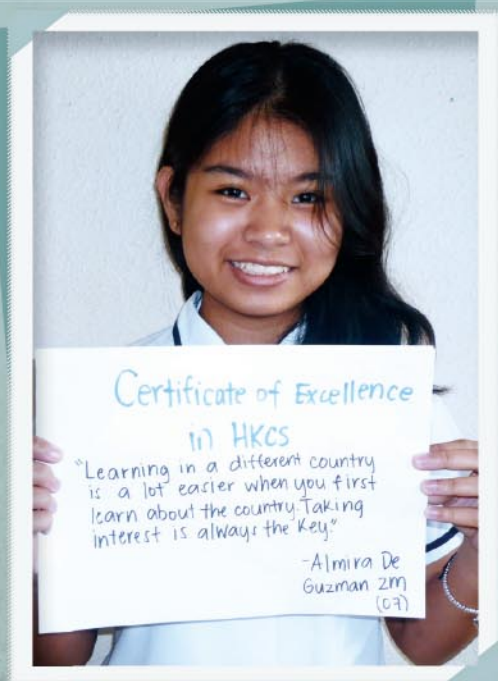 Certificate of Excellence
in HKCS
"Learning in a different country
is a lot easier when you first
learn about the country. Taking
interest is always the key."
-Almira De
Guzman 2M
(07)